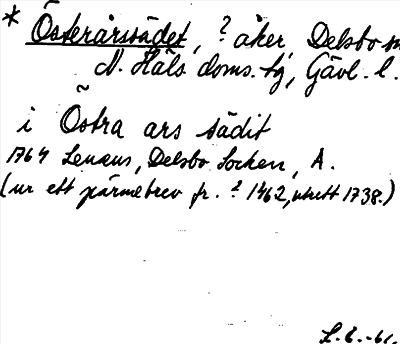 * Österårssädet, ? åker, Delsbo sn
N. Häls doms. tg, Gävl. l.
i Östra ars sädit
1764 Lenæus, Delsbo Socken, A.
(ur ett pärmebrev fr. ? 1462, utrett 1738.)
L. E. -61.